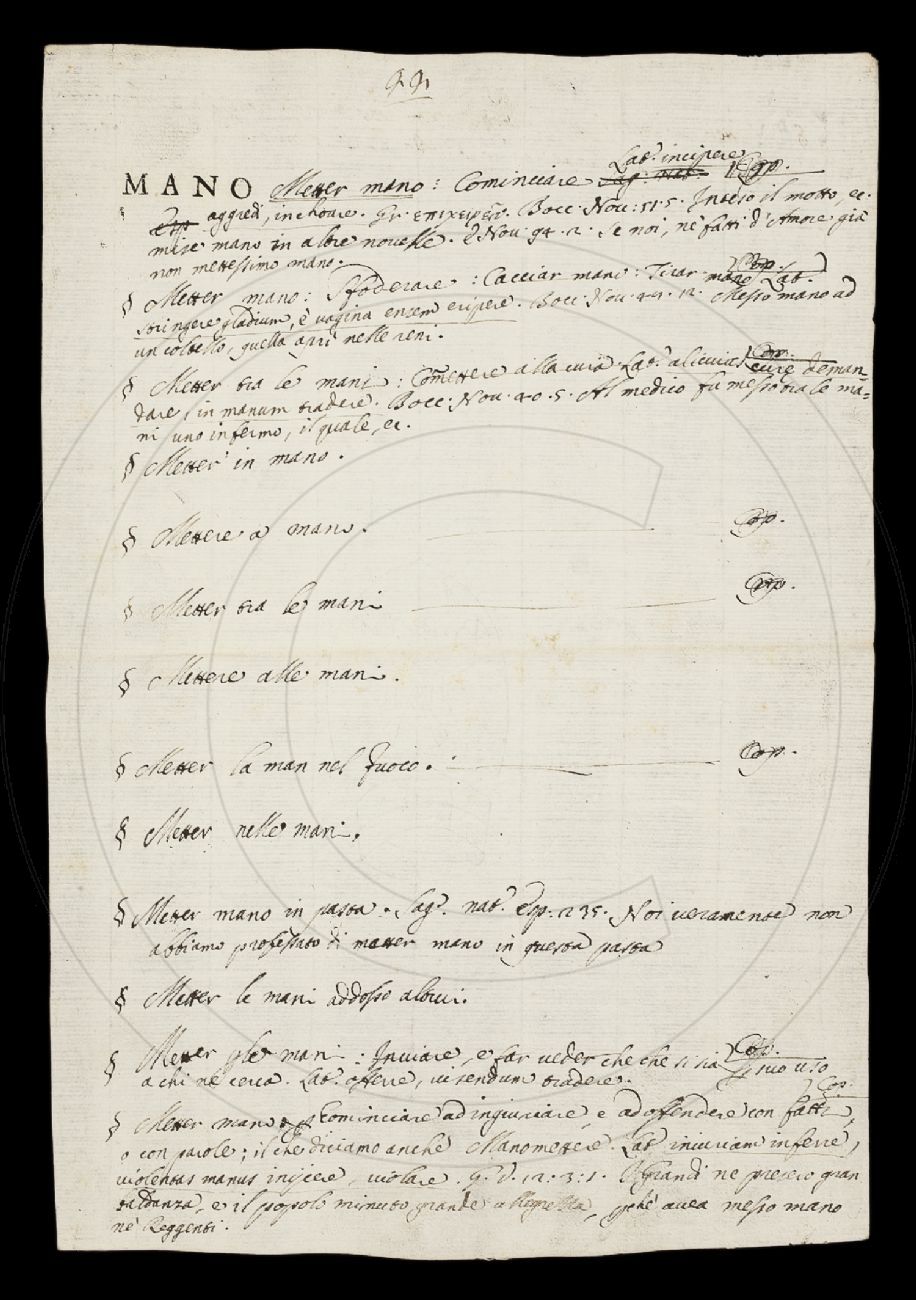 Lat. incipere
MANO Metter mano : Cominciare Sag. nat. Cop.
aggredi, inchoare. Gr. ἐπιχειρεῖν. Bocc. Nov: 51. 5. Inteso il motto, ec.
mise mano in altre novelle. E Nov. 94. 2. Se noi, ne' fatti d'Amore già
non mettessimo mano.
§ Metter mano : Sfoderare : Cacciar mano : Tirar mano Lat. Cop.
stringere gladium, è vagina ensem eripere. Bocc. Nov. 49. 12. Messo mano ad
un coltello, quella aprì nelle reni.
§ Metter tra le mani : Commettere alla cura. Lat. alicuius curę deman Cop.
dare, in manum tradere. Bocc. Nov. 40. 5. Al medico fu messo tra le ma=
ni uno infermo, il quale, ec.
§ Metter in mano.
§ Mettere a mano. Cop.
§ Metter tra le mani Cop.
§ Mettere alle mani.
§ Metter la man nel fuoco. Cop.
§ Metter nelle mani.
§ Metter mano in pasta. Sag. nat. Esp. 235. Noi veramente non
abbiamo professato di metter mano in questa pasta
§ Metter le mani addosso altrui.
§ Metter p le mani : Inviare, e far veder che che si sia p suo uso Cop.
a chi ne cerca. Lat. offerre, visendum tradere. Cop.
§ Metter mano Cominciare ad ingiuriare, e ad offendere con fatti,
o con parole; il che diciamo anche Manomettere. Lat. iniuriam inferre,
violentas manus inijcere, violare. G. V. 12. 3: 1. I Grandi ne presero gran
baldanza, e il popolo minuto grande allegrezza, pchè avea messo mano
ne' Reggenti.